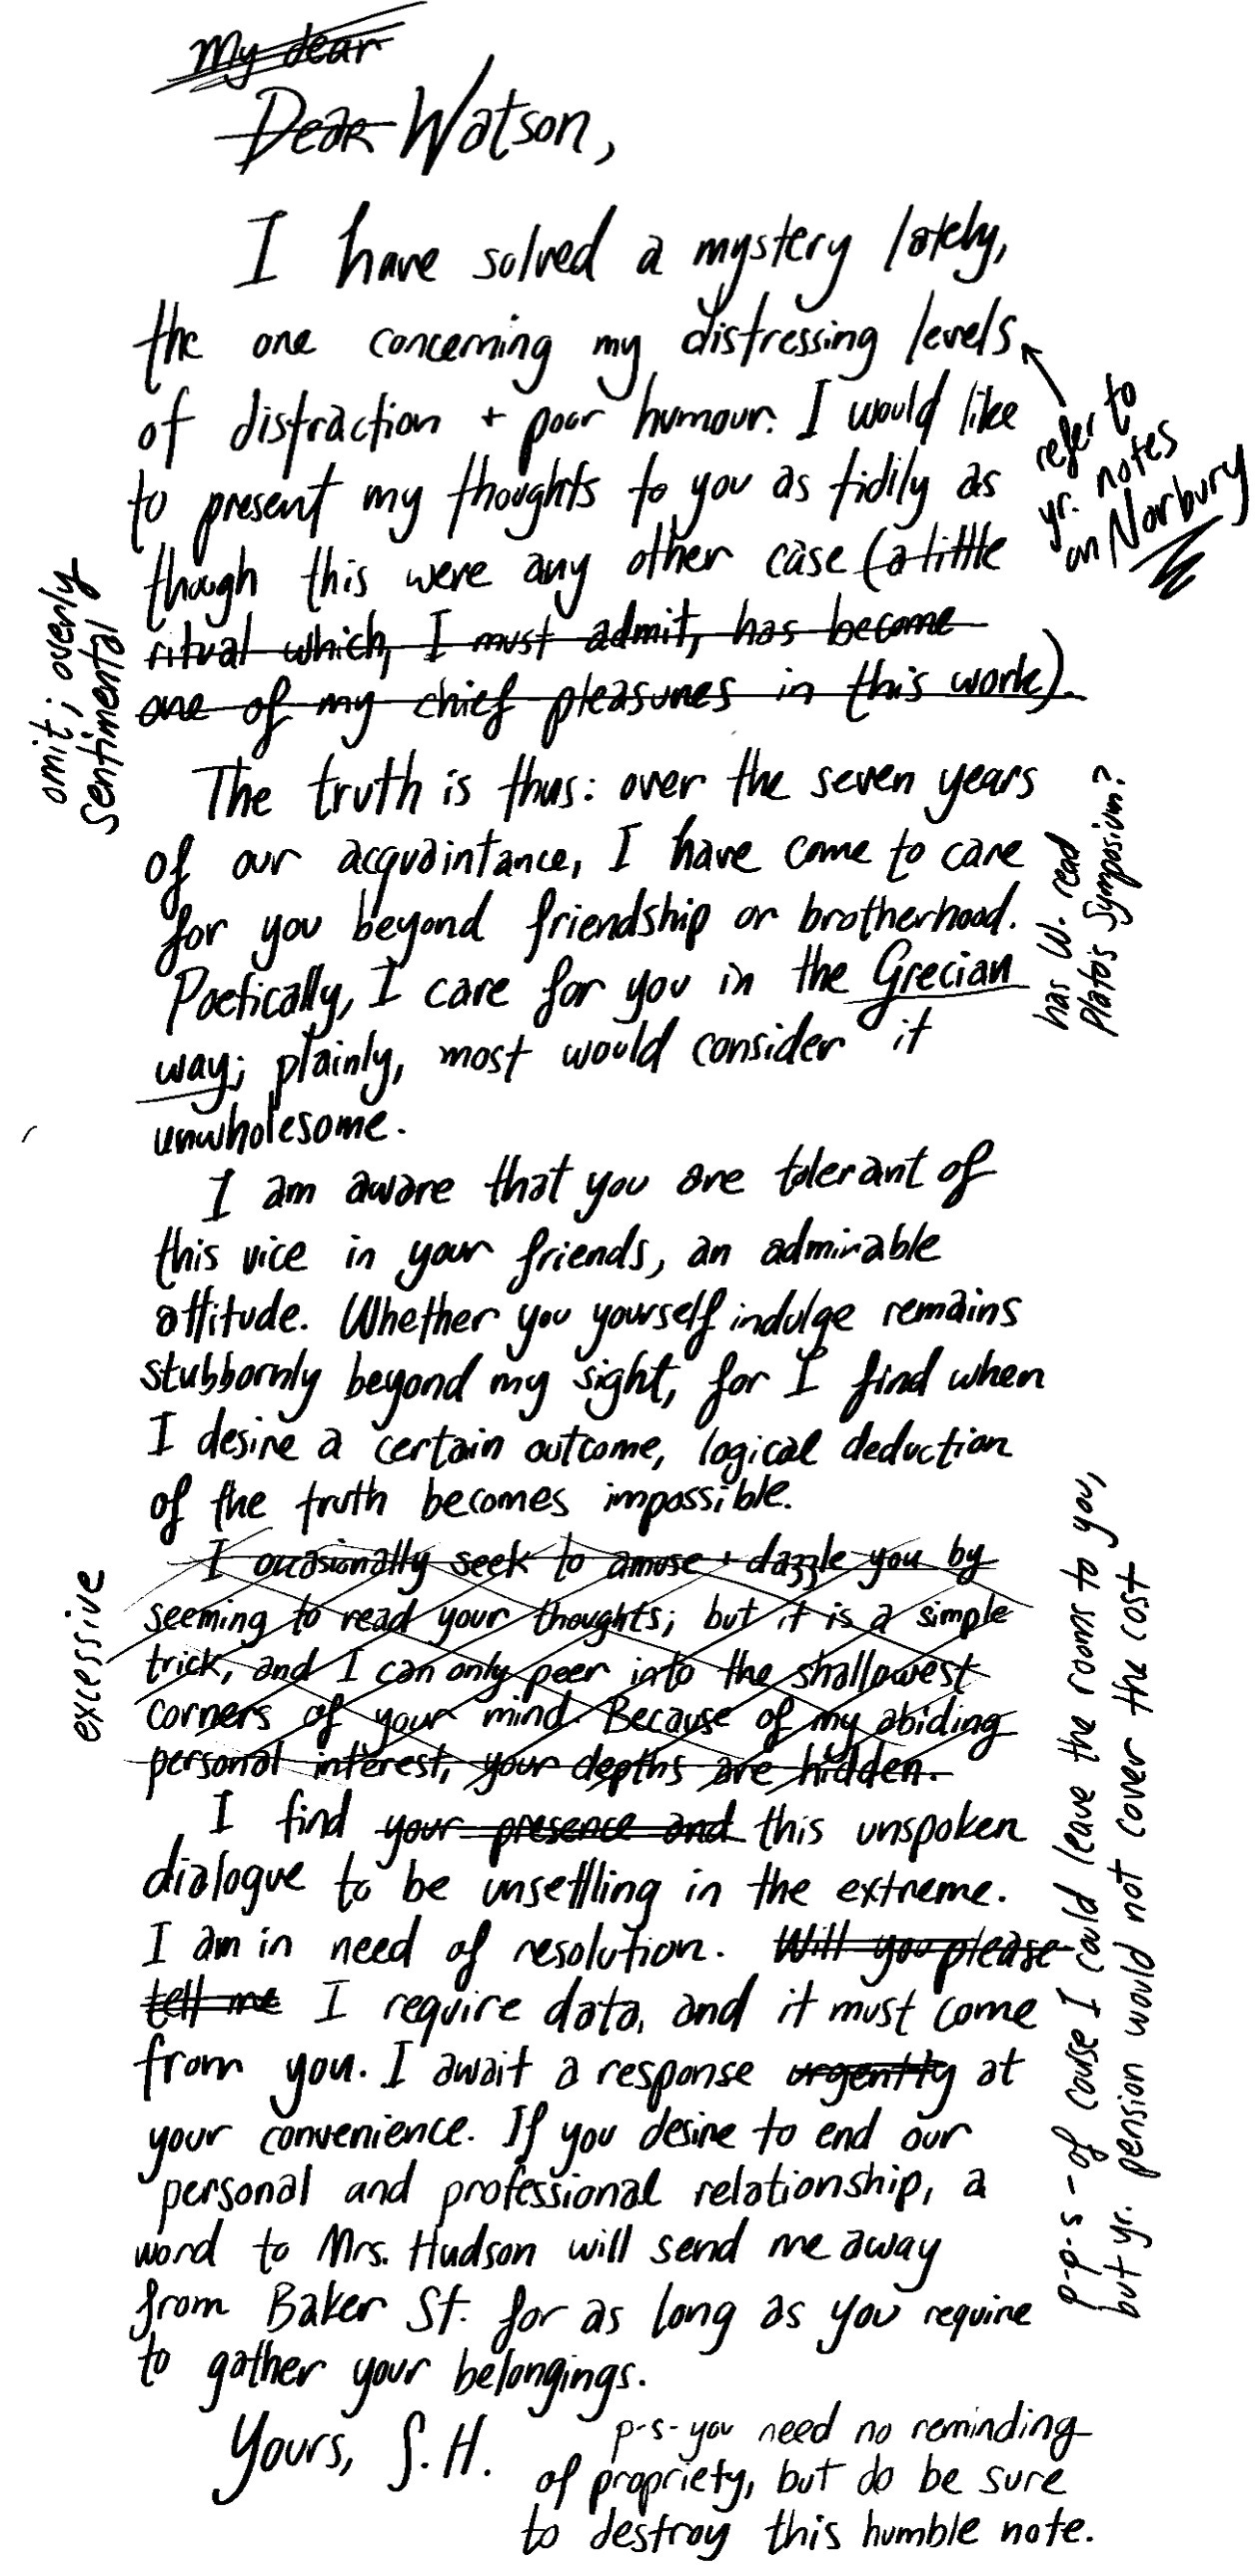 My dear
Dear Watson,
I have solved a mystery lately,
the one concerning my distressing levels
of distraction + poor humour. I would like
to present my thoughts to you as tidily as
though this were any other case (a little
ritual which, I must admit, has become
one of my chief pleasures in this work).
refer to
yr. notes
on Norbury
omit; overly
sentimental
The truth is thus: over the seven years
of our acquaintance, I have come to care
for you beyond friendship or brotherhood.
Poetically, I care for you in the Grecian
way; plainly, most would consider it
unwholesome.
has W. read
Plato's Symposium?
I am aware that you are tolerant of
this vice in your friends, an admirable
attitude. Whether you yourself indulge remains
stubbornly beyond my sight, for I find when
I desire a certain outcome, logical deduction
of the truth becomes impossible.
I occasionally seek to amuse + dazzle you by
seeming to read your thoughts; but it is a simple
trick, and I can only peer into the shallowest
corners of your mind. Because of my abiding
personal interest, your depths are hidden.
excessive
I find your presence and this unspoken
dialogue to be unsettling in the extreme.
I am in need of resolution. Will you please
tell me I require data, and it must come
from you. I await a response urgently at
your convenience. If you desire to end our
personal and professional relationship, a
word to Mrs. Hudson will send me away
from Baker St. for as long as you require
to gather your belongings.
Yours, S. H.
p-s- you need no reminding
of propriety, but do be sure
to destroy this humble note.
p-p-s - of course I could leave the rooms to you,
but yr. pension would not cover the cost